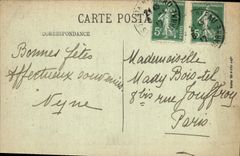 CARTE POSTALE
CORRESPONDANCE
Bonnes fêtes
Affectueux souvenirs
Mademoiselle
Mady Boistel
8 bis rue Jouffroy
Paris